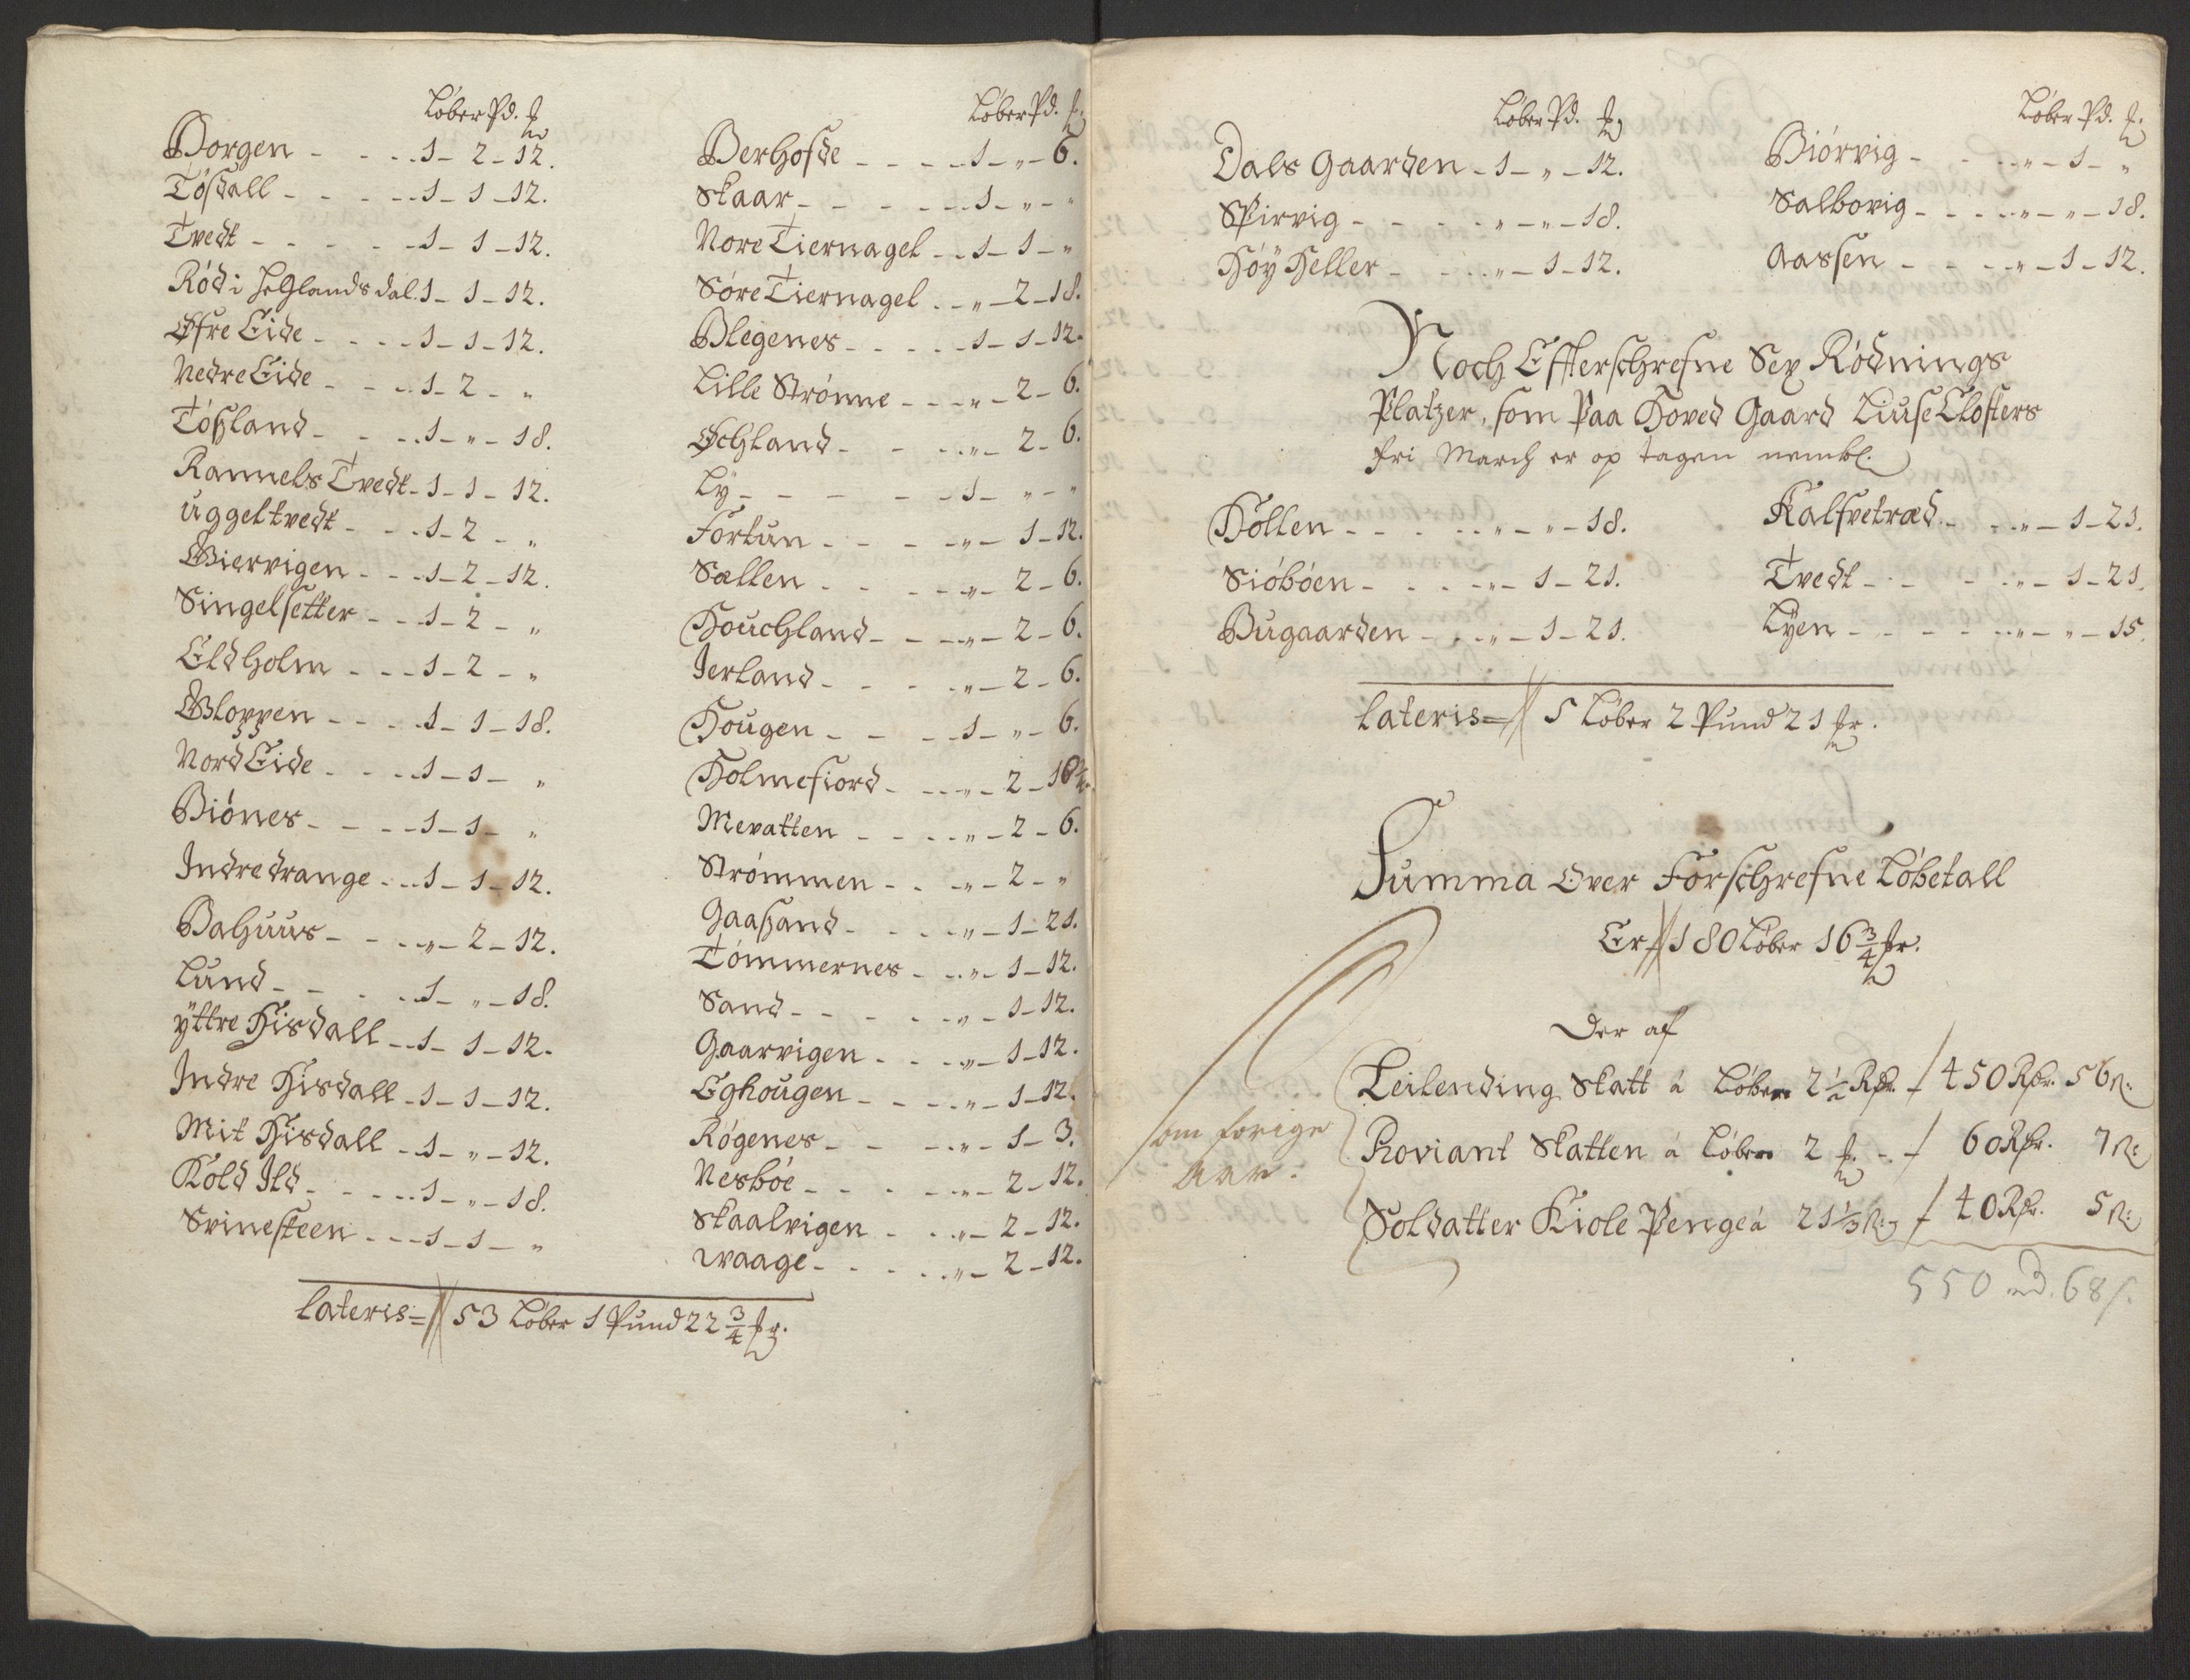 Løber Pd. ℔
Borgen - - - - 1 - 2 - 12.
Tøsdall - - - - - 1 - 1 - 12.
Tvedt - - - - - 1 - 1 - 12.
Rød i Helglands dal. 1 - 1 - 12.
Øfre Eide - - - - 1 - 1 - 12.
Nedre Eide - - - 1 - 2 - "
Tøsland - - - - 1 - " - 18.
Rannels Tvedt - 1 - 1 - 12.
uggeltvedt - - - 1 - 2 - "
Giervigen - - - 1 - 2 - 12.
Singelsetter - - 1 - 2 - "
Eldholm - - - 1 - 2 - "
Gloppen - - - - 1 - 1 - 18.
Nord Eide - - - - 1 - 1 - "
Biönes - - - - 1 - 1 - "
Indre drange - - - 1 - 1 - 12.
Bahuus - - - - " - 2 - 12.
Lund - - - - 1 - " - 18.
ÿttre Hisdall - - 1 - 1 - 12.
Indre Hisdall - 1 - 1 - 12.
Mit Hisdall - 1 - " - 12.
Kold Ild - - - - - 1 - " - 18.
Svinesteen - - - 1 - 1 - "
Løber Pd. ℔
Berhofde - - - - 1 - " - 6.
Skaar - - - - - 1 - " - "
Nore Tiernagel - - 1 - 1 - "
Søre Tiernagel - - " - 2 - 18.
Blegenes - - - - - 1 - 1 - 12.
Lille Strønne - - - " - 2 - 6.
Øchland - - - - " - 2 - 6.
Lÿ - - - - - 1 - " - "
Fortun - - - - " - 1 - 12.
Sællen - - - - " - 2 - 6.
Houchland - - - " - 2 - 6.
Jerland - - - - " - 2 - 6.
Hougen - - - - 1 - " - 6.
Holmefiord - - - " - 2 -
Mevatten - - - - " - 2 - 6.
Strømmen - - - " - 2 - "
Gaasand - - - - " - 1 - 21.
Tømmernes - - - " - 1 - 12.
Sand - - - - - " - 1 - 12.
Gaarvigen - - - " - 1 - 12.
Eghougen - - - - " - 1 - 12.
Røgenes - - - - " - 1 - 3.
Nesbøe - - - - " - 2 - 12.
Skaalvigen - - - " - 2 - 12.
Waage - - - - - " - 2 - 12.
Lateris = 53 Løber 1 Pund 22 3/4 ℔r.
Løber Pd. ℔
Dals Gaarden - 1 - " - 12.
Spirvig - - - - " - " - 18.
Høÿ Heller - - - " - 1 - 12.
Løber Pd. ℔
Biörvig - - - - " - 1 - "
Salbovig - - - - " - " - 18.
Aassen - - - - " - 1 - 12.
Noch Effterschrefne Sex Rødnings
Platzer, som Paa Hoved Gaard Liuse Closters
fri March er op tagen nembl.
Hollen - - - - " - " - 18.
Siöbøen - - - - " - 1 - 21.
Bugaarden - - - " - 1 - 21.
Kalfvetræd - - - " - 1 - 21.
Tvedt - - - - " - 1 - 21.
Lÿen - - - - - " - " - 15.
Lateris = 5 Løber 2 Pund 21 ℔r.
Summa over Forschrefne Løbetall
Er 180 Løber 16 3/4 ℔r.
Der af
Leilending Skatt á Løben 2 1/2 Rdr. 450 Rdr. 56 ß
Proviant Skatten á Løben 2 ℔. - 60 Rdr. 7 ß
Soldatter Kiole Penge á 21 1/3 ß 40 Rdr. 5 ß
som forige
Aar:
550 rd. 68 ß.